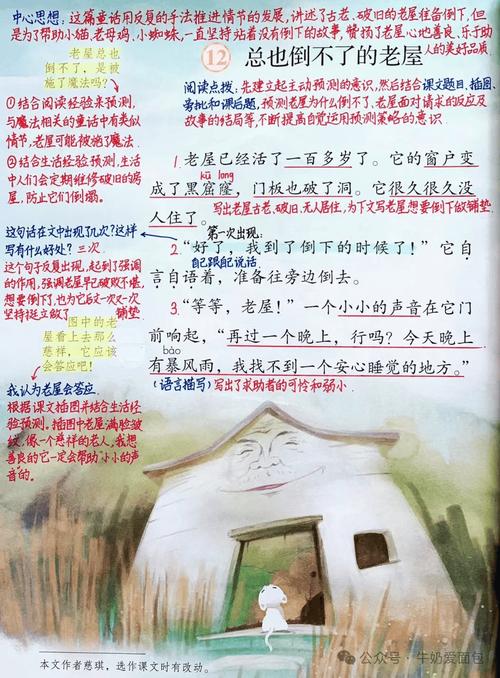 中心思想:这篇童话用反复的手法推进情节的发展,讲述了古老、破旧的老屋准备倒下,但
是为了帮助小猫,老母鸡、小蜘蛛,一直坚持站着没有倒下的故事,赞扬了老屋心地善良、乐于助
人的美好品质
12 总也倒不了的老屋
老屋总也
倒不了,是被
施了魔法吗?
①结合阅读经验来预测,
与魔法相关的童话中有类似
情节,老屋可能被施了魔法.
②结合生活经验预测,生活
中人们会定期维修破旧的房
屋,防止它们倒塌。
阅读点拨:先建立起主动预测的意识,然后结合课文题目、插图、
旁批和课后题,预测老屋为什么倒不了、老屋面对请求的反应及
故事的结局等,不断提高自觉运用预测策略的意识
1.老屋已经活了一百多岁了。它的窗户变
kū long
成了黑窟窿,门板也破了洞。它很久很久没
人住了。
写出老屋古老、破旧、无人居住,为下文写老屋想要倒下做铺垫.
第一次出现:
2.“好了,我到了倒下的时候了!”它自
自己跟自己说话
言自语着,准备往旁边倒去。
这句话在文中出现了几次?这样
写有什么好处?三次
这个句子反复出现,起到了强调
的作用,强调老屋早已破败不堪,
想要倒下了,也为它后文一次又一次
坚持挺立做了铺垫
3.“等等,老屋!”一个小小的声音在它门
前响起,“再过一个晚上,行吗?今天晚上
bào
有暴风雨,我找不到一个安心睡觉的地方。”
(语言描写)写出了求助者的可怜和弱小.
图中的老
屋看上去那么
慈祥,它应该
会答应吧!
我认为老屋会答应.
根据课文插图并结合生活经
验预测.插图中老屋满脸皱
纹,像一个慈祥的老人,我想
善良的它一定会帮助“小小的声
音”的。
本文作者慈琪,选作课文时有改动。
公众号·牛奶爱面包